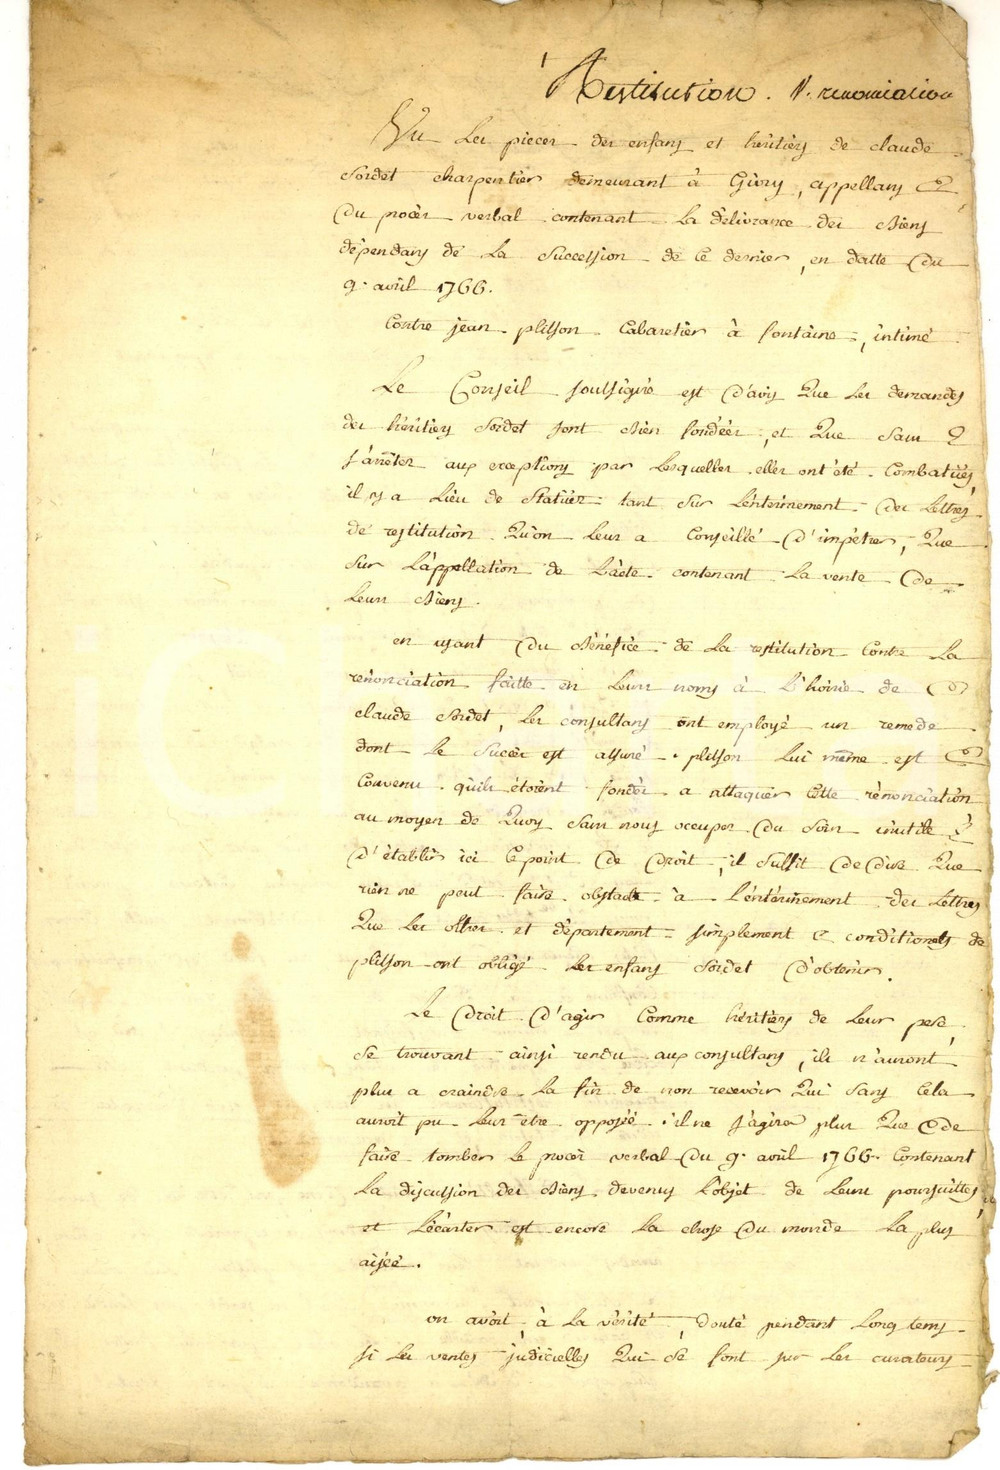 Restitution. V. renonciation
Vu les pieces des enfans et héritiers de claude
Sordet charpentier demeurant à Givry, appellans
du procès verbal contenant la délivrance des biens
dépendans de la succession de ce dernier, en datte du
9. avril 1766.
Contre jean plitson Cabaretier à fontaine, intimé
Le Conseil soussigné est d'avis Que les demandes
des héritiers Sordet sont bien fondées, et Que sans
s'arrêter aux exceptions par lesquelles elles ont été Combatües,
il y a lieu de Statüer tant sur l'entérinement des Lettres
de restitution Qu'on leur a Conseillé d'impétrer, Que
sur l'appellation de l'acte contenant la vente de
leurs biens.
en usant du bénéfice de la restitution Contre la
rénonciation faitte en leurs noms à l'hoirie de
claude Sordet, les consultans ont employé un remede
dont le succès est assuré. plitson lui même est
Convenu qu'ils étoient fondés a attaquer Cette rénonciation
au moyen de Quoy sans nous occuper du soin inutile
d'établir ici le point de Droit, il suffit de dire Que
rien ne peut faire obstacle à l'éntérinement des Lettres
Que les offres et département simplement conditionels de
plitson ont obligé les enfans Sordet d'obtenir.
Le Droit d'agir Comme héritiers de leur pere,
se trouvant ainsi rendu aux consultans, ils n'auront
plus a craindre la fin de non recevoir Qui sans Cela
auroit pu leur être opposée. il ne s'agira plus Que de
faire tomber le procès verbal du 9. avril 1766. Contenant
la discussion des biens devenus l'objet de leurs poursuittes,
et l'écarter est encore la chose du monde la plus
aisée.
on avoit, à la vérité, douté pendant long tems
si les ventes judicielles Qui se font sur les curateurs